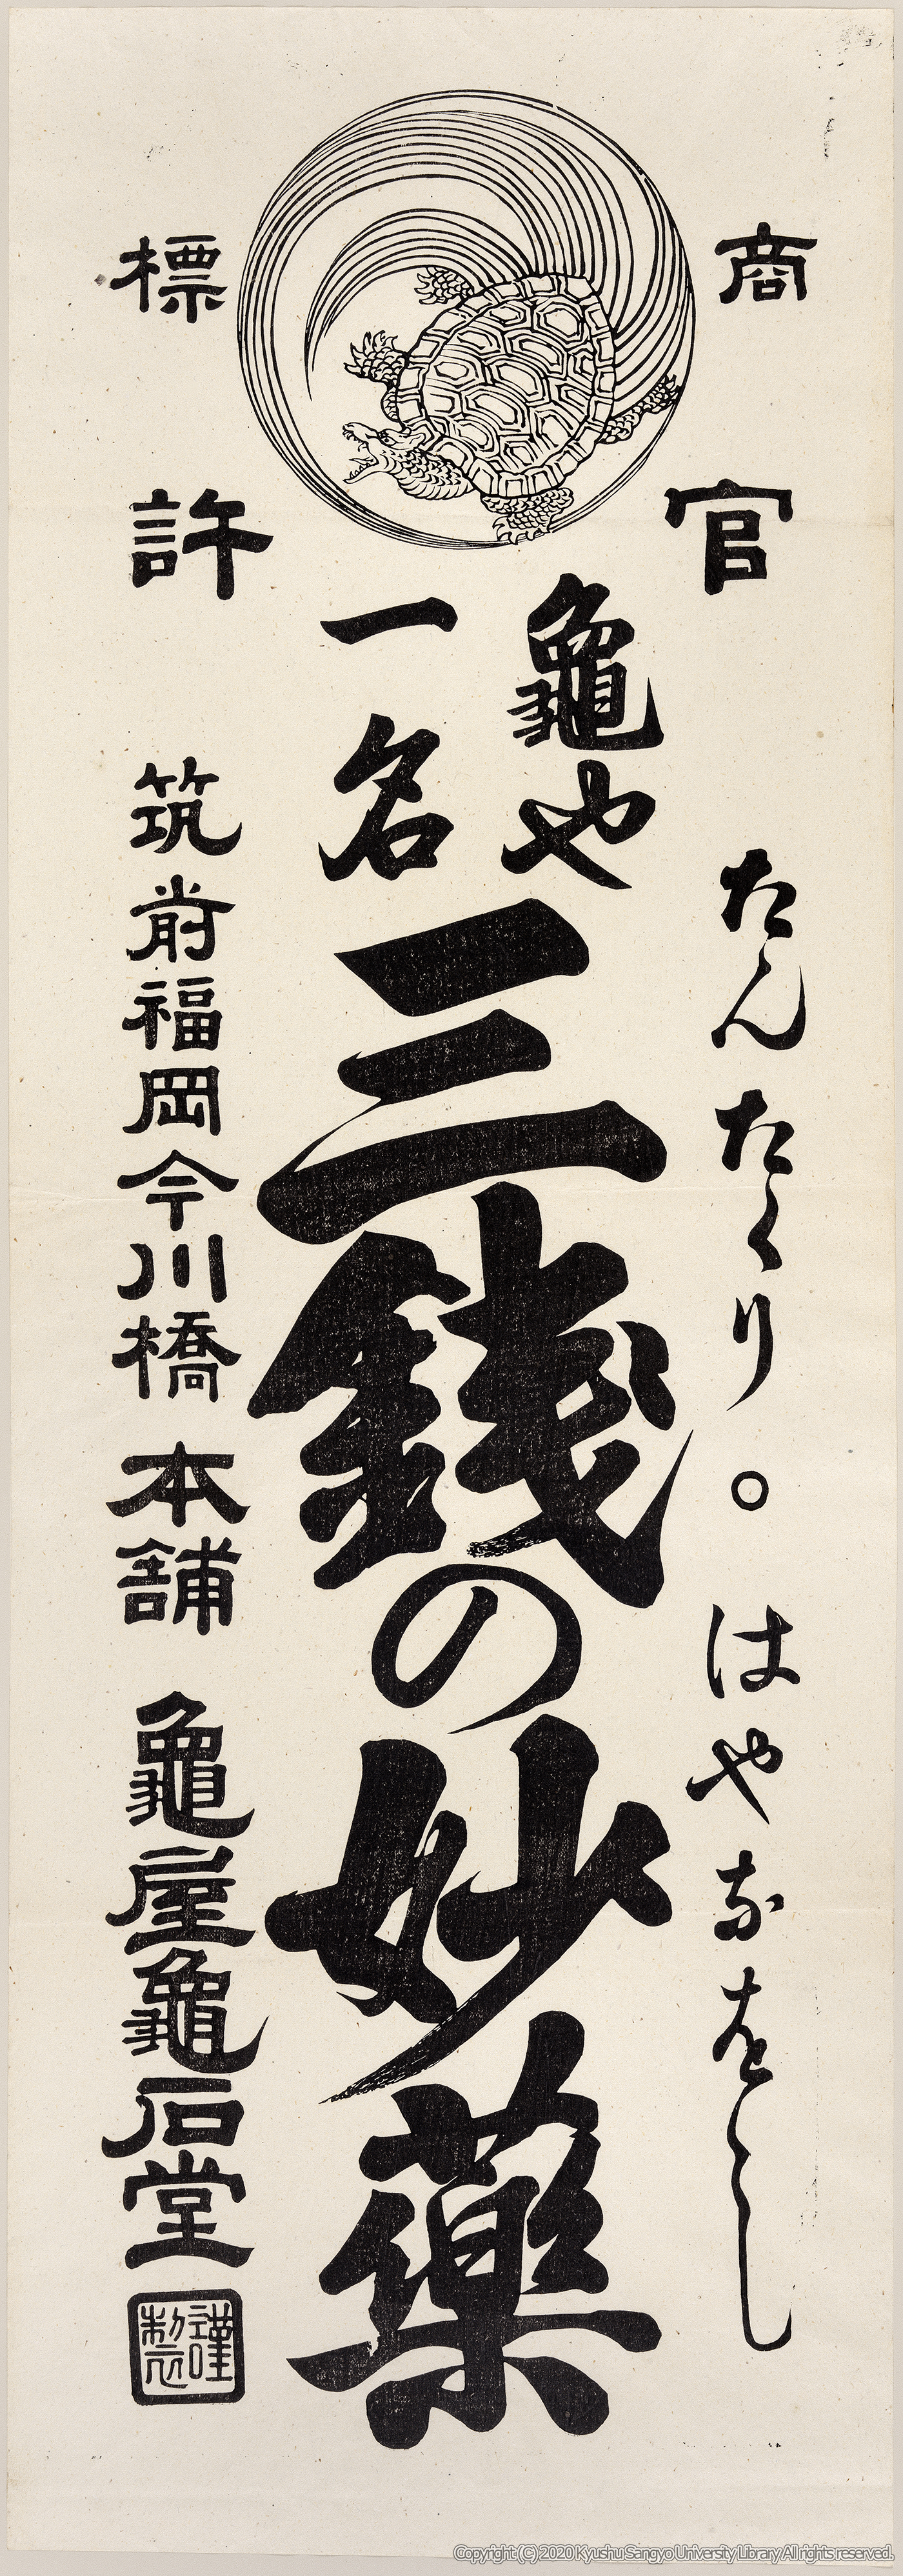 商標
官許
たんたくり。はやなをし
亀や
一名
三銭の妙薬
筑前福岡今川橋 本舗 亀屋亀石堂
謹製
Copyright (C) 2020 Kyushu Sangyo University Library All rights reserved.